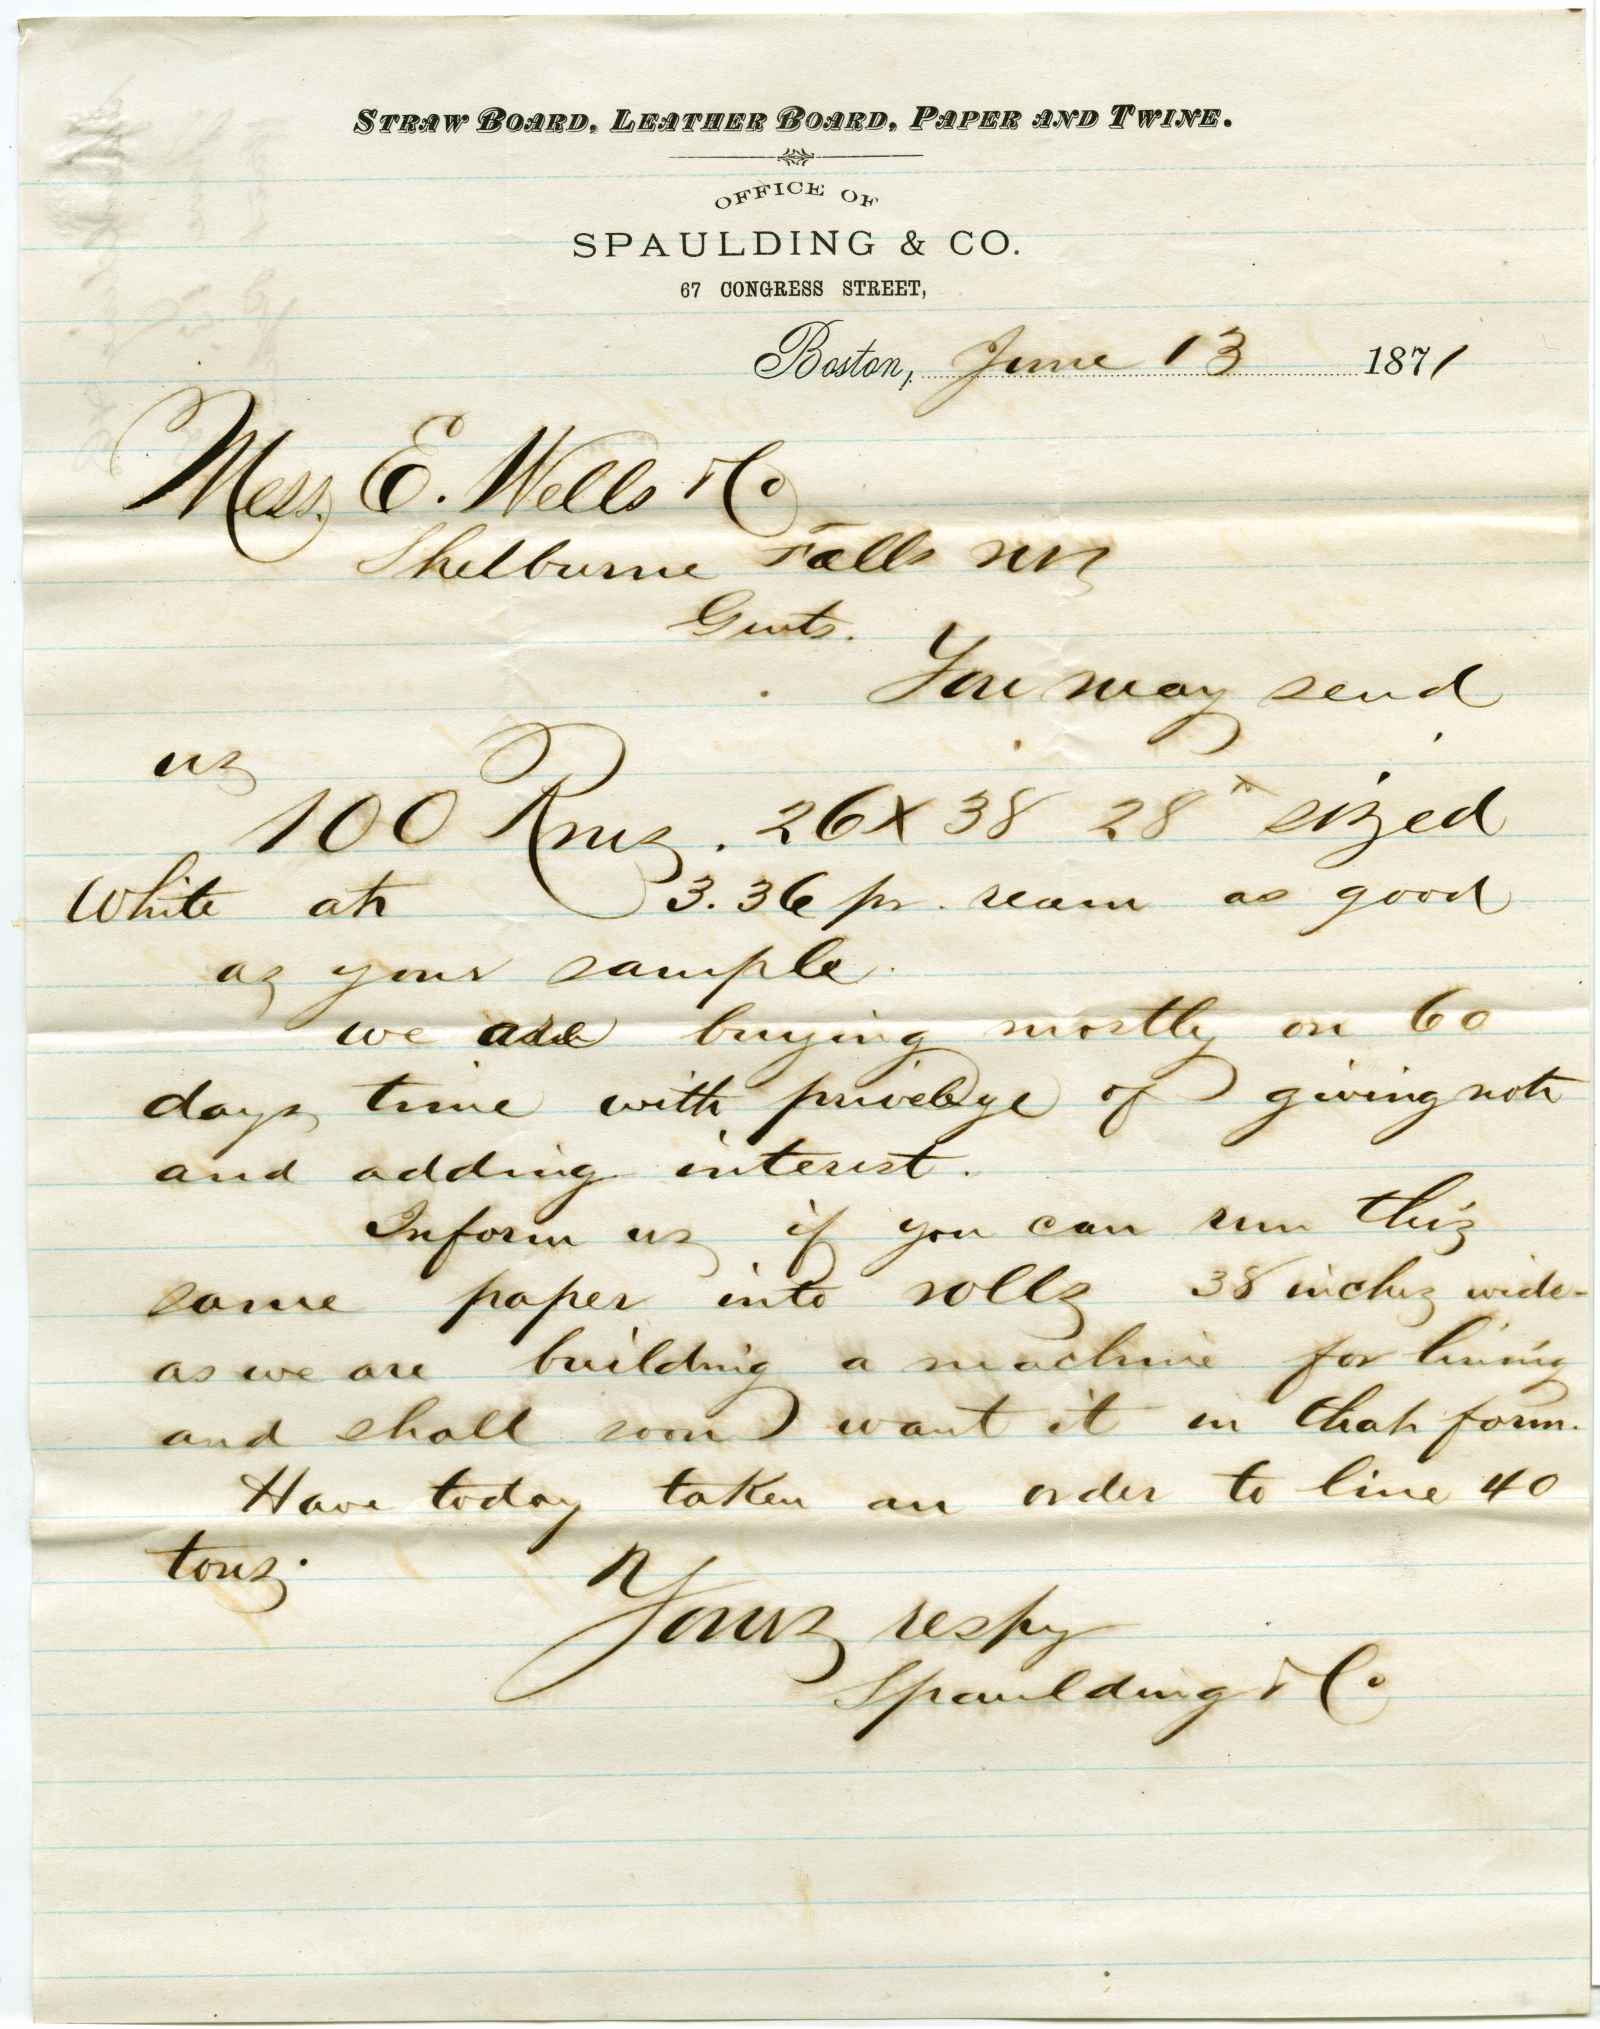 STRAW BOARD, LEATHER BOARD, PAPER AND TWINE.
OFFICE OF
SPAULDING & CO.
67 CONGRESS STREET,
Boston, June 13 1871
Mess. E. Wells & Co
Shelburne Falls
Gents.
You may send
us
100 Rms. 26 x 38 28 sized
White at 3.36 pr. ream as good
as your sample.
we are buying mostly on 60
days time with privelege of giving note
and adding interest.
Inform us if you can run this
same paper into rolls 38 inches wide-
as we are building a machine for lining
and shall soon want it in that form.
Have today taken an order to line 40
tons.
Yours respy
Spaulding & Co